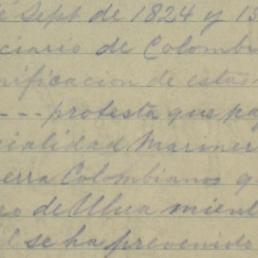 de Sept de 1824 y 13
ciario de Colombi
nificacion de estam
--- protesta que pa
cialidad Mariner
erra Colombianos q
ro de Ulua mient
l se ha prevenido